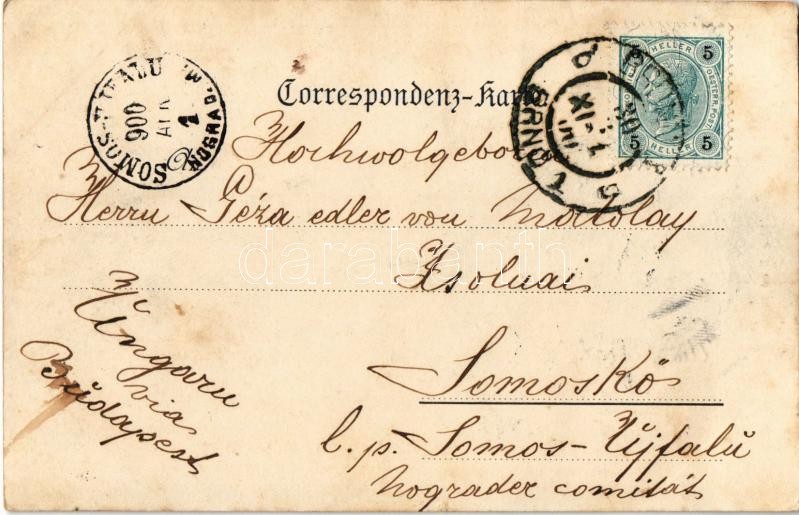 SOMOS-UJFALU
900
1
NOGRAD M.
Correspondenz-Karte
5 HELLER 5
5 HELLER 5
BRÜNN
BRNO 1
Hochwolgeboren
Herrn Géza edler von Matolay
Zsolnai
Somoskő
l.p. Somos-Újfalŭ
Nograder comitát
Ŭngarn
via
Bŭdapest
darabanth